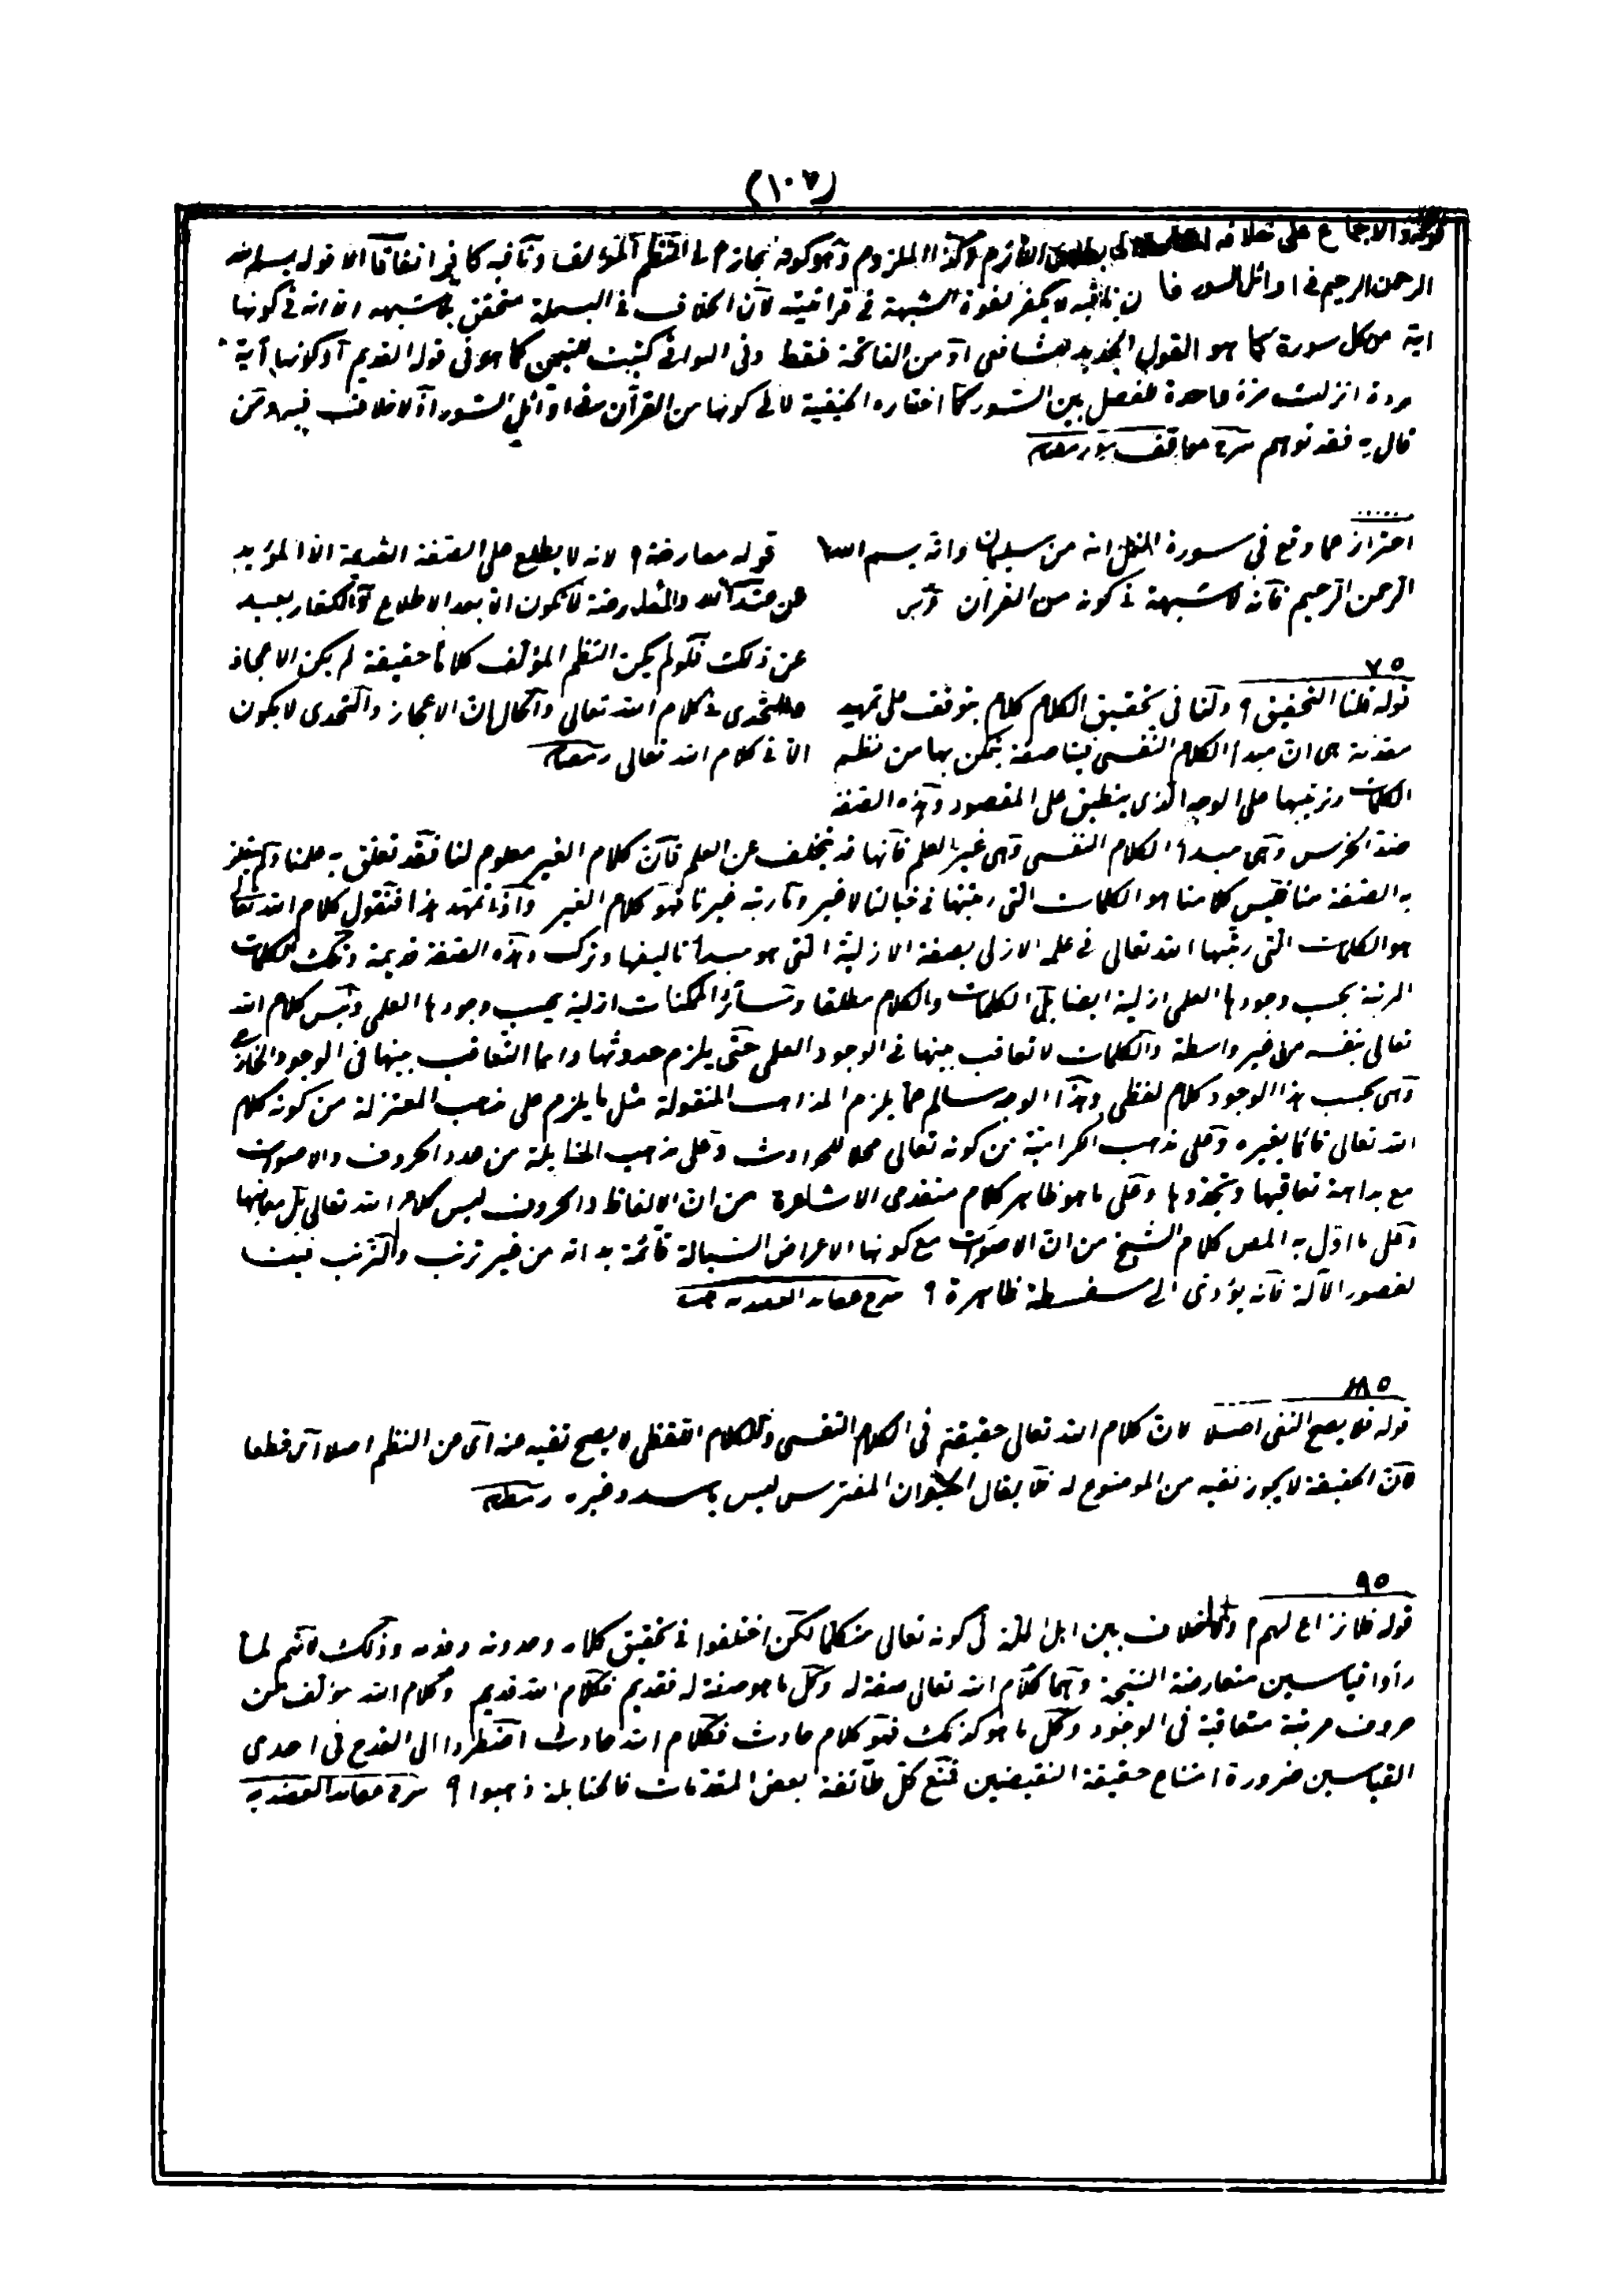 (١٠٧)
قوله والاجماع على خلافه بطلان اللازم وكذا الملزوم وهو كونه مجازا في النظم المؤلف ونافيه كافر اتفاقا الا قوله بسم الله
الرحمن الرحيم في اوائل السور فان نافيه لا يكفر لقوة الشبهة في قرآنيته لان الخلاف في البسملة متحقق بلا شبهة الا انه في كونها
اية من كل سورة كما هو القول الجديد للشافعي او من الفاتحة فقط وفي البواقي كتبت للتيمن كما هو في قوله القديم او كونها آية
فردة انزلت مرة واحدة للفصل بين السور كما اختاره الحنفية لا في كونها من القرآن في اوائل السور اذ لا خلاف فيه ومن
قال به فقد توهم شرح مواقف
احتراز عما وقع في سورة النمل انه من سليمان وانه بسم الله
الرحمن الرحيم فانه لا شبهة في كونه من القرآن
قوله معارضة ؟ لانه لا يطلع على الصفة القديمة الا المؤيد
من عند الله والمعارضة لا تكون الا بعد الاطلاع والكفار بعيد
عن ذلك فلو لم يكن النظم المؤلف كلاما حقيقة لم يكن الاعجاز
والتحدي في كلام الله تعالى والحال ان الاعجاز والتحدي لا يكون
الا في كلام الله تعالى رمضان
٧٥
قوله قلنا التحقيق ؟ ولنا في تحقيق الكلام كلام يتوقف على تمهيد
مقدمة هى ان مبدأ الكلام النفسى فينا صفة يتمكن بها من نظم
الكلمات وترتيبها على الوجه الذى ينطبق على المقصود وهذه الصفة
ضد الخرس وهى مبدأ الكلام النفسى وهى غير العلم فانها قد تخلف عن العلم فان كلام الغير معلوم لنا فقد تعلق به علمنا ولم يتعلق
به الصفة منا فليس كلامنا هو الكلمات التى رتبنها في خيالنا لا غير وما رتبه غيرنا فهو كلام الغير واذا تمهد هذا فنقول كلام الله تعالى
هو الكلمات التى رتبها الله تعالى في علمه الازلى بصفة الازلية التى هو مبدأ تأليفها وتركب وهذه الصفة قديمة وتلك الكلمات
المرتبة بحسب وجودها العلمى ازلية ايضا بل الكلمات والكلام مطلقا وسائر الممكنات ازلية بحسب وجودها العلمى وليس كلام الله
تعالى بنفسه من غير واسطة والكلمات لا تعاقب بينها في الوجود العلمى حتى يلزم حدوثها وانما التعاقب بينها في الوجود الخارجى
وهى بحسب هذا الوجود كلام لفظى وهذا الوجه سالم عما يلزم المذاهب المنقولة مثل ما يلزم على مذهب المعتزلة من كونه كلام
الله تعالى قائما بغيره وعلى مذهب الكرامية من كونه تعالى محلا للحوادث وعلى مذهب الحنابلة من قدم الحروف والاصوات
مع بداهة تعاقبها وتجددها وعلى ما هو ظاهر كلام متقدمى الاشاعرة من ان الالفاظ والحروف ليس كلام الله تعالى بل معانيها
وعلى ما اول به المص كلام الشيخ من ان الاصوات مع كونها الاعراض السيالة قائمة بذاته من غير ترتب والترتب فينا
لقصور الآلة فانه يؤدى الى سفسطة ظاهرة ؟ شرح عقائد العضدية
٨٥
قوله فلا يصح النفى اصلا لان كلام الله تعالى حقيقة في الكلام النفسى والكلام اللفظى لا يصح نفيه عنه اى من النظم اصلا اى قطعا
لان الحقيقة لا يجوز نفيه من الموضوع له فلا يقال الحيوان المفترس ليس باسد وغيره رمضان
٩٥
قوله فلا نزاع لهم ولا خلاف بين اهل الملة في كونه تعالى متكلما لكن اختلفوا في تحقيق كلامه وحدوثه وقدمه وذلك لانهم لما
رأوا قياسين متعارضة النتيجة وهما كلام الله تعالى صفة له وكل ما هو صفة له فقديم فكلام الله قديم وكلام الله مؤلف من
حروف مرتبة متعاقبة في الوجود وكل ما هو كذلك فهو كلام حادث فكلام الله حادث اضطروا الى القدح في احدى
القياسين ضرورة امتناع حقيقة النقيضين فمنع كل طائفة بعض المقدمات فالحنابلة ذهبوا ؟ شرح عقائد العضدية